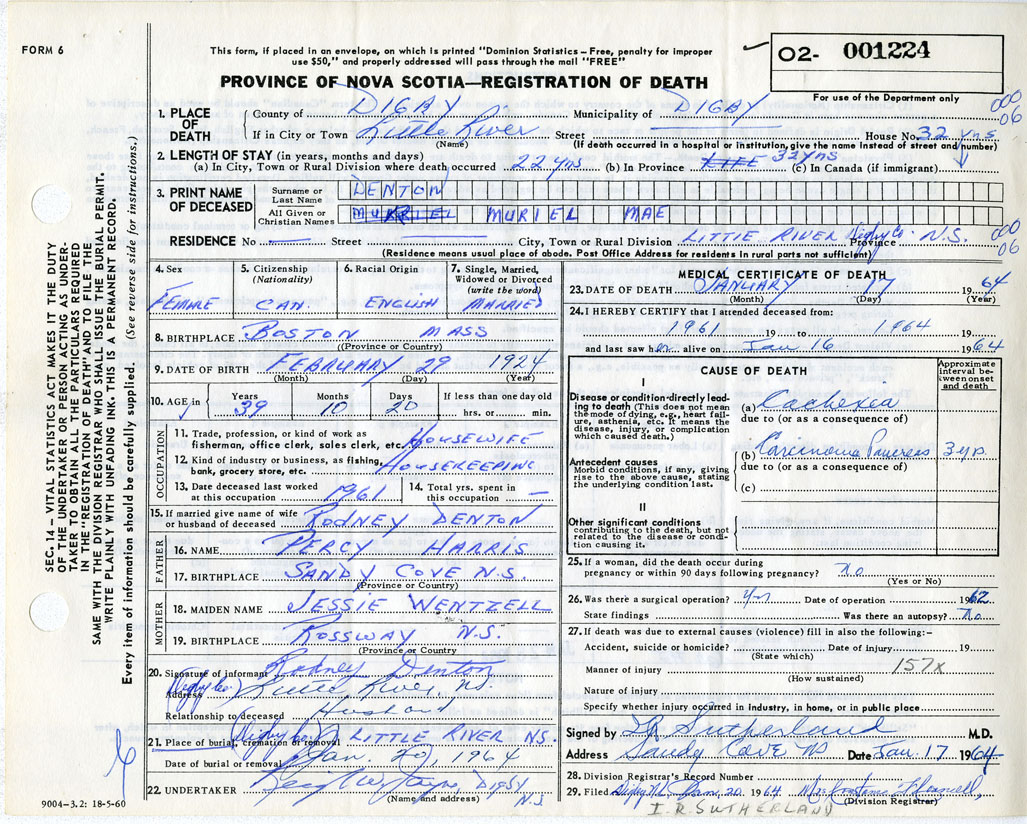 FORM 6
This form, if placed in an envelope, on which is printed "Dominion Statistics – Free, penalty for improper
use $50," and properly addressed will pass through the mail "FREE"
PROVINCE OF NOVA SCOTIA—REGISTRATION OF DEATH
02- 001224
For use of the Department only
000
06
1. PLACE OF DEATH
County of DIGBY Municipality of DIGBY
If in City or Town Little River Street — House No. 32 yrs
(Name) (If death occurred in a hospital or institution, give the name instead of street and number)
2. LENGTH OF STAY (in years, months and days)
(a) In City, Town or Rural Division where death occurred 22 yrs (b) In Province LIFE 32 yrs (c) In Canada (if immigrant)
3. PRINT NAME OF DECEASED
Surname or Last Name DENTON
All Given or Christian Names MURRIEL MURIEL MAE
RESIDENCE No — Street — City, Town or Rural Division LITTLE RIVER Digby Co. Province N.S.
000
06
(Residence means usual place of abode. Post Office Address for residents in rural parts not sufficient)
4. Sex FEMALE
5. Citizenship (Nationality) CAN
6. Racial Origin ENGLISH
7. Single, Married, Widowed or Divorced (write the word) MARRIED
8. BIRTHPLACE BOSTON MASS
(Province or Country)
9. DATE OF BIRTH FEBRUARY 29 1924
(Month) (Day) (Year)
10. AGE in Years 39 Months 10 Days 20 If less than one day old hrs. or min.
OCCUPATION
11. Trade, profession, or kind of work as fisherman, office clerk, sales clerk, etc. HOUSEWIFE
12. Kind of industry or business, as fishing, bank, grocery store, etc. HOUSEKEEPING
13. Date deceased last worked at this occupation 1961
14. Total yrs. spent in this occupation —
15. If married give name of wife or husband of deceased RODNEY DENTON
FATHER
16. NAME PERCY HARRIS
17. BIRTHPLACE SANDY COVE N.S.
(Province or Country)
MOTHER
18. MAIDEN NAME JESSIE WENTZELL
19. BIRTHPLACE ROSSWAY N.S.
(Province or Country)
20. Signature of informant Rodney Denton
Address (Digby Co.) Little River, N.S.
Relationship to deceased Husband
21. Place of burial, cremation or removal (Digby Co.) LITTLE RIVER N.S.
Date of burial or removal Jan. 20, 1964
22. UNDERTAKER Digby N.S.
(Name and address)
9004-3.2: 18-5-60
SEC. 14 – VITAL STATISTICS ACT MAKES IT THE DUTY
OF THE UNDERTAKER OR PERSON ACTING AS UNDER-
TAKER TO OBTAIN ALL THE PARTICULARS REQUIRED
IN THE "REGISTRATION OF DEATH" AND TO FILE THE
SAME WITH THE DIVISION REGISTRAR WHO SHALL ISSUE THE BURIAL PERMIT.
WRITE PLAINLY WITH UNFADING INK. THIS IS A PERMANENT RECORD.
Every item of information should be carefully supplied. (See reverse side for instructions.)
MEDICAL CERTIFICATE OF DEATH
23. DATE OF DEATH JANUARY 17 1964
(Month) (Day) (Year)
24. I HEREBY CERTIFY that I attended deceased from:
1961 19 to 1964 19
and last saw her alive on Jan 16 1964
CAUSE OF DEATH
Approximate interval between onset and death
I
Disease or condition directly leading to death (This does not mean the mode of dying, e.g., heart failure, asthenia, etc. It means the disease, injury, or complication which caused death.)
(a) Cachexia
due to (or as a consequence of)
Antecedent causes
Morbid conditions, if any, giving rise to the above cause, stating the underlying condition last.
(b) Carcinoma Pancreas 3 yrs.
due to (or as a consequence of)
(c)
II
Other significant conditions
contributing to the death, but not related to the disease or condition causing it.
25. If a woman, did the death occur during pregnancy or within 90 days following pregnancy? No
(Yes or No)
26. Was there a surgical operation? Yes Date of operation 1962
State findings Was there an autopsy? No
27. If death was due to external causes (violence) fill in also the following:–
Accident, suicide or homicide? Date of injury 19
(State which)
Manner of injury 157X
(How sustained)
Nature of injury
Specify whether injury occurred in industry, in home, or in public place
Signed by I R Sutherland M.D.
Address Sandy Cove NS Date Jan. 17 1964
28. Division Registrar's Record Number
29. Filed Jan. 20 1964
(Division Registrar)
I. R. SUTHERLAND